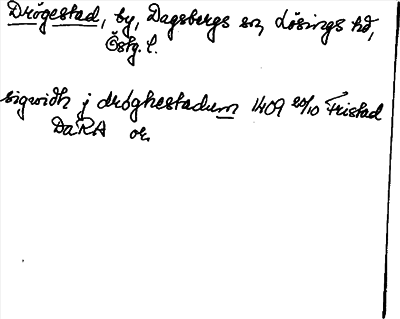 Drögestad, by, Dagsbergs sn, Lösings hd,
Östg. l.
sigwidh j drøghestadum 1409 20/10 Fristad
DaRA or.